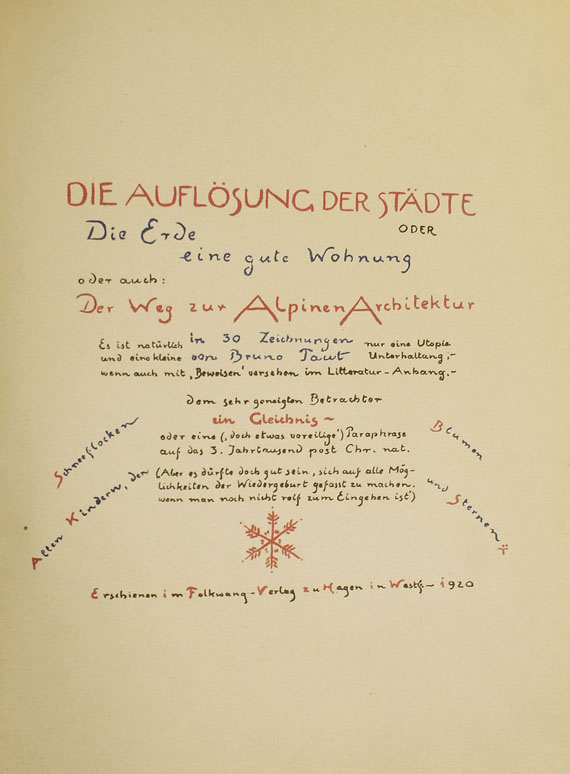 DIE AUFLÖSUNG DER STÄDTE
ODER
Die Erde
eine gute Wohnung
oder auch:
Der Weg zur Alpinen Architektur
in 30 Zeichnungen
von Bruno Taut
Es ist natürlich nur eine Utopie
und eine kleine Unterhaltung,-
wenn auch mit „Beweisen" versehen im Litteratur-Anhang.-
dem sehr geneigten Betrachter
ein Gleichnis ~
oder eine („doch etwas voreilige") Paraphrase
auf das 3. Jahrtausend post Chr. nat.
(Aber es dürfte doch gut sein, sich auf alle Mög-
lichkeiten der Wiedergeburt gefasst zu machen,
wenn man noch nicht reif zum Eingehen ist")
Allen Kindern, den
Schneeflocken
Blumen
und Sternen
Erschienen im Folkwang-Verlag zu Hagen in Westf.- 1920